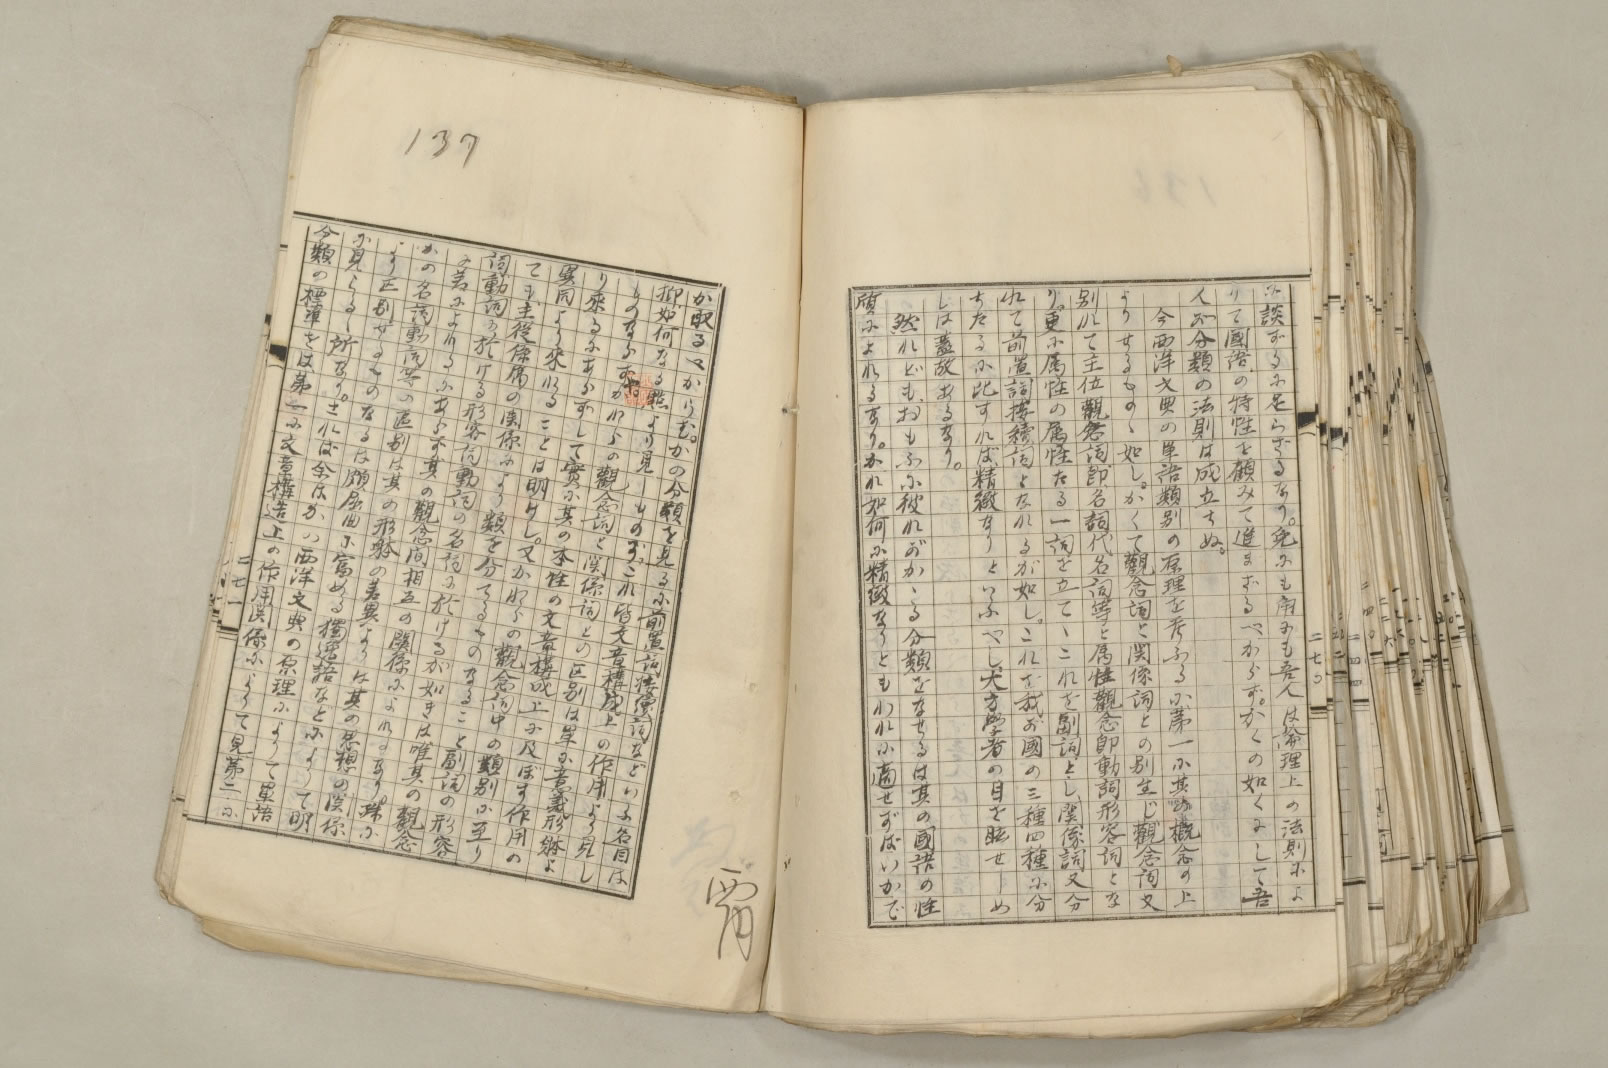 に談ずるに足らざるなり。兎にも角にも吾人は論理上の法則によ
りて國語の特性を顧みて進まざるべからず。かくの如くにして吾
人が分類の法則は成立ちぬ。
今西洋文典の単語類別の原理を考ふるに第一に其概念の上
よりせるものゝ如し。かくて觀念詞と関係詞との別生じ觀念詞又
別れて主位觀念詞即名詞代名詞等と属性觀念即動詞形容詞とな
り。更に属性の属性たる一詞を立てゝこれを副詞とし関係詞又分
れて前置詞接續詞となれるが如し。これを我が國の三種四種に分
ちたるに比すれば精緻なりといふべし大方學者の目を眩せしめ
しは蓋故あるなり。
然れどもおもふに彼れがかゝる分類をなせるは其の國語の性
質によれるなり。かれ如何に精緻なりともわれに適せずばいかで
か取るべからむ。かの分類を見るに前置詞接續詞などいふ名目は
抑如何なる點より見しものぞ。これ皆文章構成上の作用より見し
ものならずや。かれらの觀念詞と関係詞との区別は単に意義形体よ
り来るにあらずして實に其の本性の文章構成上に及ぼす作用の
異同より来れることは明けし。又かれらの觀念詞中の類別に至り
ても主從係属の関係により類を分てるものなること副詞の形容
詞動詞に於ける形容詞動詞の名詞に於けるが如きは唯其の觀念
に若によれるにあらず其の觀念間相互の関係によれるなり。殊に
かの名詞動詞等の区別は其の形体の差異よりは其の思想の関係
より区別せるものなるは頗屈曲に富める獨逸語などによりて明
に見らるゝ所なり。されば余はかの西洋文典の原理によりて単語
分類の標準をは第一に文章構造上の作用関係によりて見第二に
二七〇
二七一
137